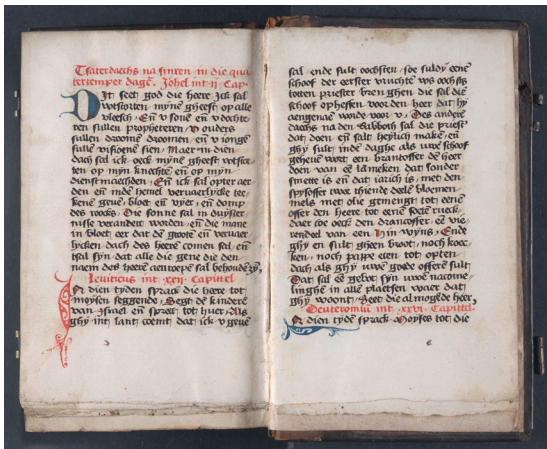 Tsaterdaechs na sinxen in die qua
tertemper dagē. Johel int ij Cap.
Dit seet god die heere Ick sal
wtstorten mynē gheest op alle
vleesch. En̄ v sonē en̄ v dochte
ren sullen propheteren. V ouders
sullen droomē droomen / en̄ v iongē
sullē visioenē sien. Maer in dien
dach sal ick oeck mynē gheest wtstor
ten op myn knechtē en̄ op myn
dienstmaechden. En̄ ick sal opter aer
den en̄ indē hemel vervaerlycke tee
kenē gevē / bloet en̄ vyer / en̄ domp
des roocks. Die sonne sal in duyster
nisse verandert worden / en̄ die mane
in bloet eer dat dē groote en̄ vervaer
lycken dach des heerē comen sal / en̄
tsal syn dat alle die gene die den
naem des heerē aenroepē sal behoudē syn.
Leuiticus int xxiij Capittel
In dien tyden sprack die heere tot
moysen seggende / Segt dē kinderē
van Israel en̄ spreect tot huer / Als
ghy int lant coemt dat ick v gevē
sal / ende sult oochsten / soe suldy eenē
schoof der eerster vruchtē ws oochsts
totten priester brenghen die sal diē
schoof opheffen voor den heer dat hy
aengenaē worde voor v. Des anderē
daechs na den Sabboth sal die priestr
dat doen en̄ salt heylich makē / en̄
ghy sult indē daghe als uwē schoof
geheuē wort een brantoffer dē heer
doen van eē lāmeken dat sonder
smette is en̄ dat iarich is / met den
spysoffer twee thiende deelē bloemen
mels met olie gemengt tot eenē
offer den heere tot eenē soetē rueck
daer toe oeck den drancoffer / eē vie
rendeel van een Hin wyns. Ende
ghy en sult gheen broot / noch koec
ken / noch pappe eten tot opten
dach als ghy uwē goede offerē sult
Dat sal eē geloef syn uwē nacome
linghē in allē plaetsen waer dat
ghy woont. Seet die almogēde heer.
Deuteromiū int xxvi Capittel
In dien tydē sprack Moyses tot die